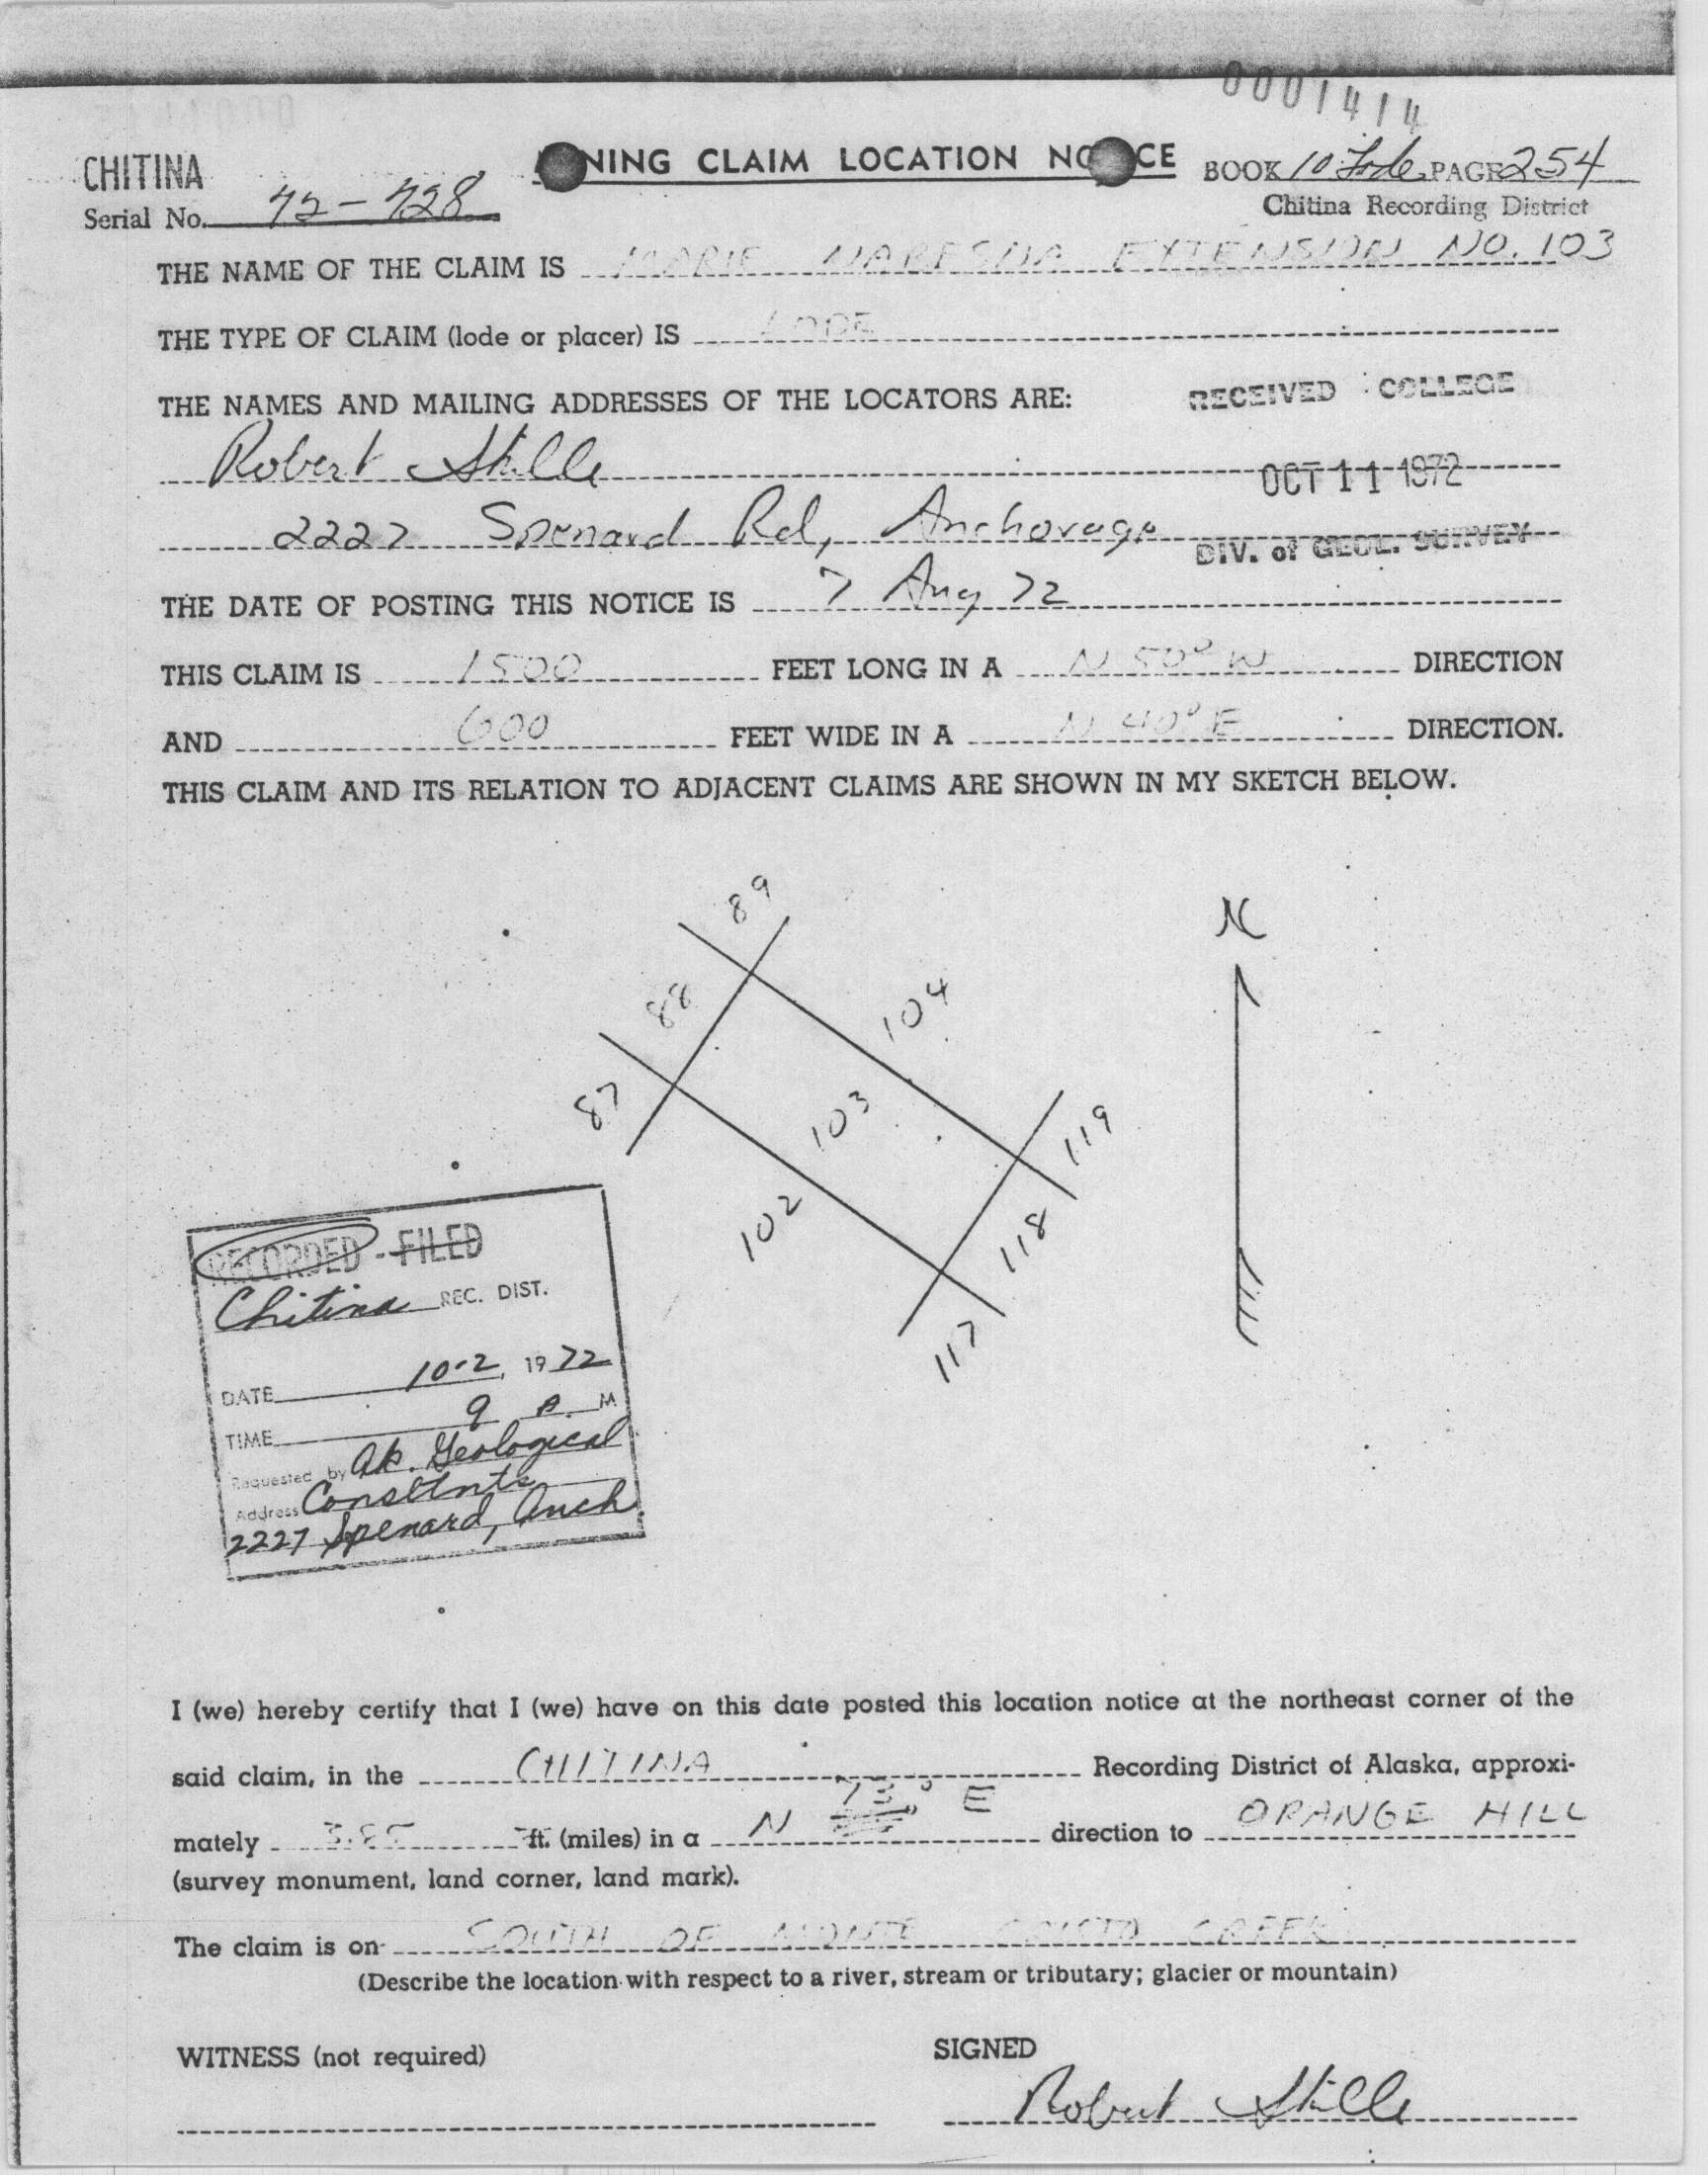 0001414
CHITINA
NING CLAIM LOCATION NO CE
BOOK 10 Lode PAGE 254
Serial No. 72-728
Chitina Recording District
THE NAME OF THE CLAIM IS MARIE NABESNA EXTENSION NO. 103
THE TYPE OF CLAIM (lode or placer) IS LODE
THE NAMES AND MAILING ADDRESSES OF THE LOCATORS ARE:
RECEIVED COLLEGE
Robert Skille
OCT 11 1972
2227 Spenard Rd, Anchorage
DIV. of GEOL. SURVEY
THE DATE OF POSTING THIS NOTICE IS 7 Aug 72
THIS CLAIM IS 1500 FEET LONG IN A N 50° W DIRECTION
AND 600 FEET WIDE IN A N 40° E DIRECTION.
THIS CLAIM AND ITS RELATION TO ADJACENT CLAIMS ARE SHOWN IN MY SKETCH BELOW.
89
N
88
104
87
103
119
102
118
117
RECORDED - FILED
Chitina REC. DIST.
DATE 10-2, 1972
TIME 9 A. M
Requested by Ak. Geological
Address Consltnts
2227 Spenard, Anch
I (we) hereby certify that I (we) have on this date posted this location notice at the northeast corner of the
said claim, in the CHITINA Recording District of Alaska, approxi-
mately 3.85 ft. (miles) in a N 73° E direction to ORANGE HILL
(survey monument, land corner, land mark).
The claim is on SOUTH OF MONTE CRISTO CREEK
(Describe the location with respect to a river, stream or tributary; glacier or mountain)
WITNESS (not required)
SIGNED
Robert Skille